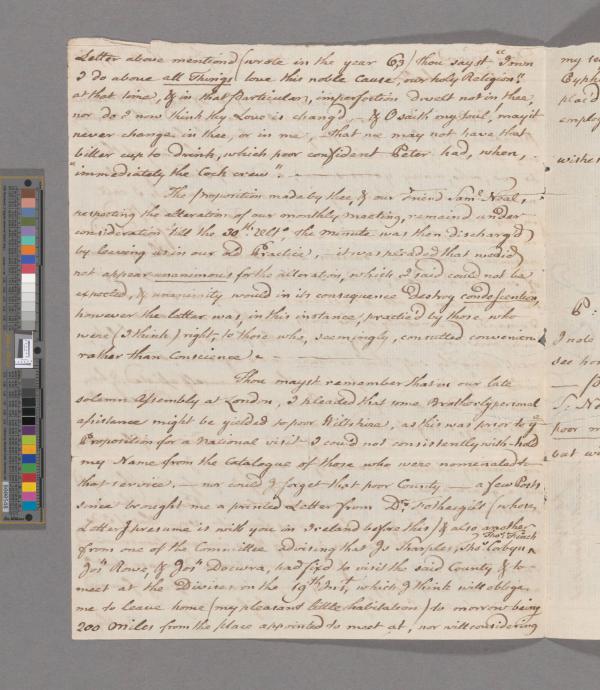 Letter above mentiond (wrote in the year 63) thou sayst "I own
I do above all Things love this noble Cause, our holy Religion".
at that time, & in that Particular, imperfection dwelt not in thee,
nor do I now think thy Love is chang'd & O saith my Soul, may it
never change in thee, or in me, that we may not have that
bitter cup to drink, which poor confident Peter had, when,
"immediately the Cock crew".
The Proposition made by thee, & our Friend Saml. Neal,
respecting the alteration of our monthly meeting, remained under
consideration till the 20th. Ulto. the minute was then discharg'd
by leaving us in our old Practice, it was pleaded that we did
not appear unanimous for the alteration, which I said could not be
expected, & unanimity would in its consequence destroy condescention,
however the latter was, in this instance, practic'd by those who
were (I think) right, to those who, seemingly, consulted convenien
rather than Conscience.
Thou mayst remember that in our late
solemn Assembly at Londn, I pleaded that some Brotherly personal
assistance might be yielded to poor Wiltshire, as this was prior to ye
Proposition for a National visit I could not consistently with-hold
my Name from the Catalogue of those who were nominated to
that service, nor could I forget that poor County a few Posts
since brought me a printed Letter from Dr. Fothergill (whose
Letter I presume is with you in Ireland before this) & also another
from one of the Committee advising that Is Sharples, Thos. Corbyn
Thos. Finch
Josh. Rowe, & Josh. Docwra, had fix'd to visit the said County & to
meet at the Divises on the 19th Inst, which I think will oblige
me to leave home (my pleasant little habitation) to morrow being
200 miles from the place appointed to meet at, nor will considering
my
plac'd
employ
wishes
I note
see
poor
but